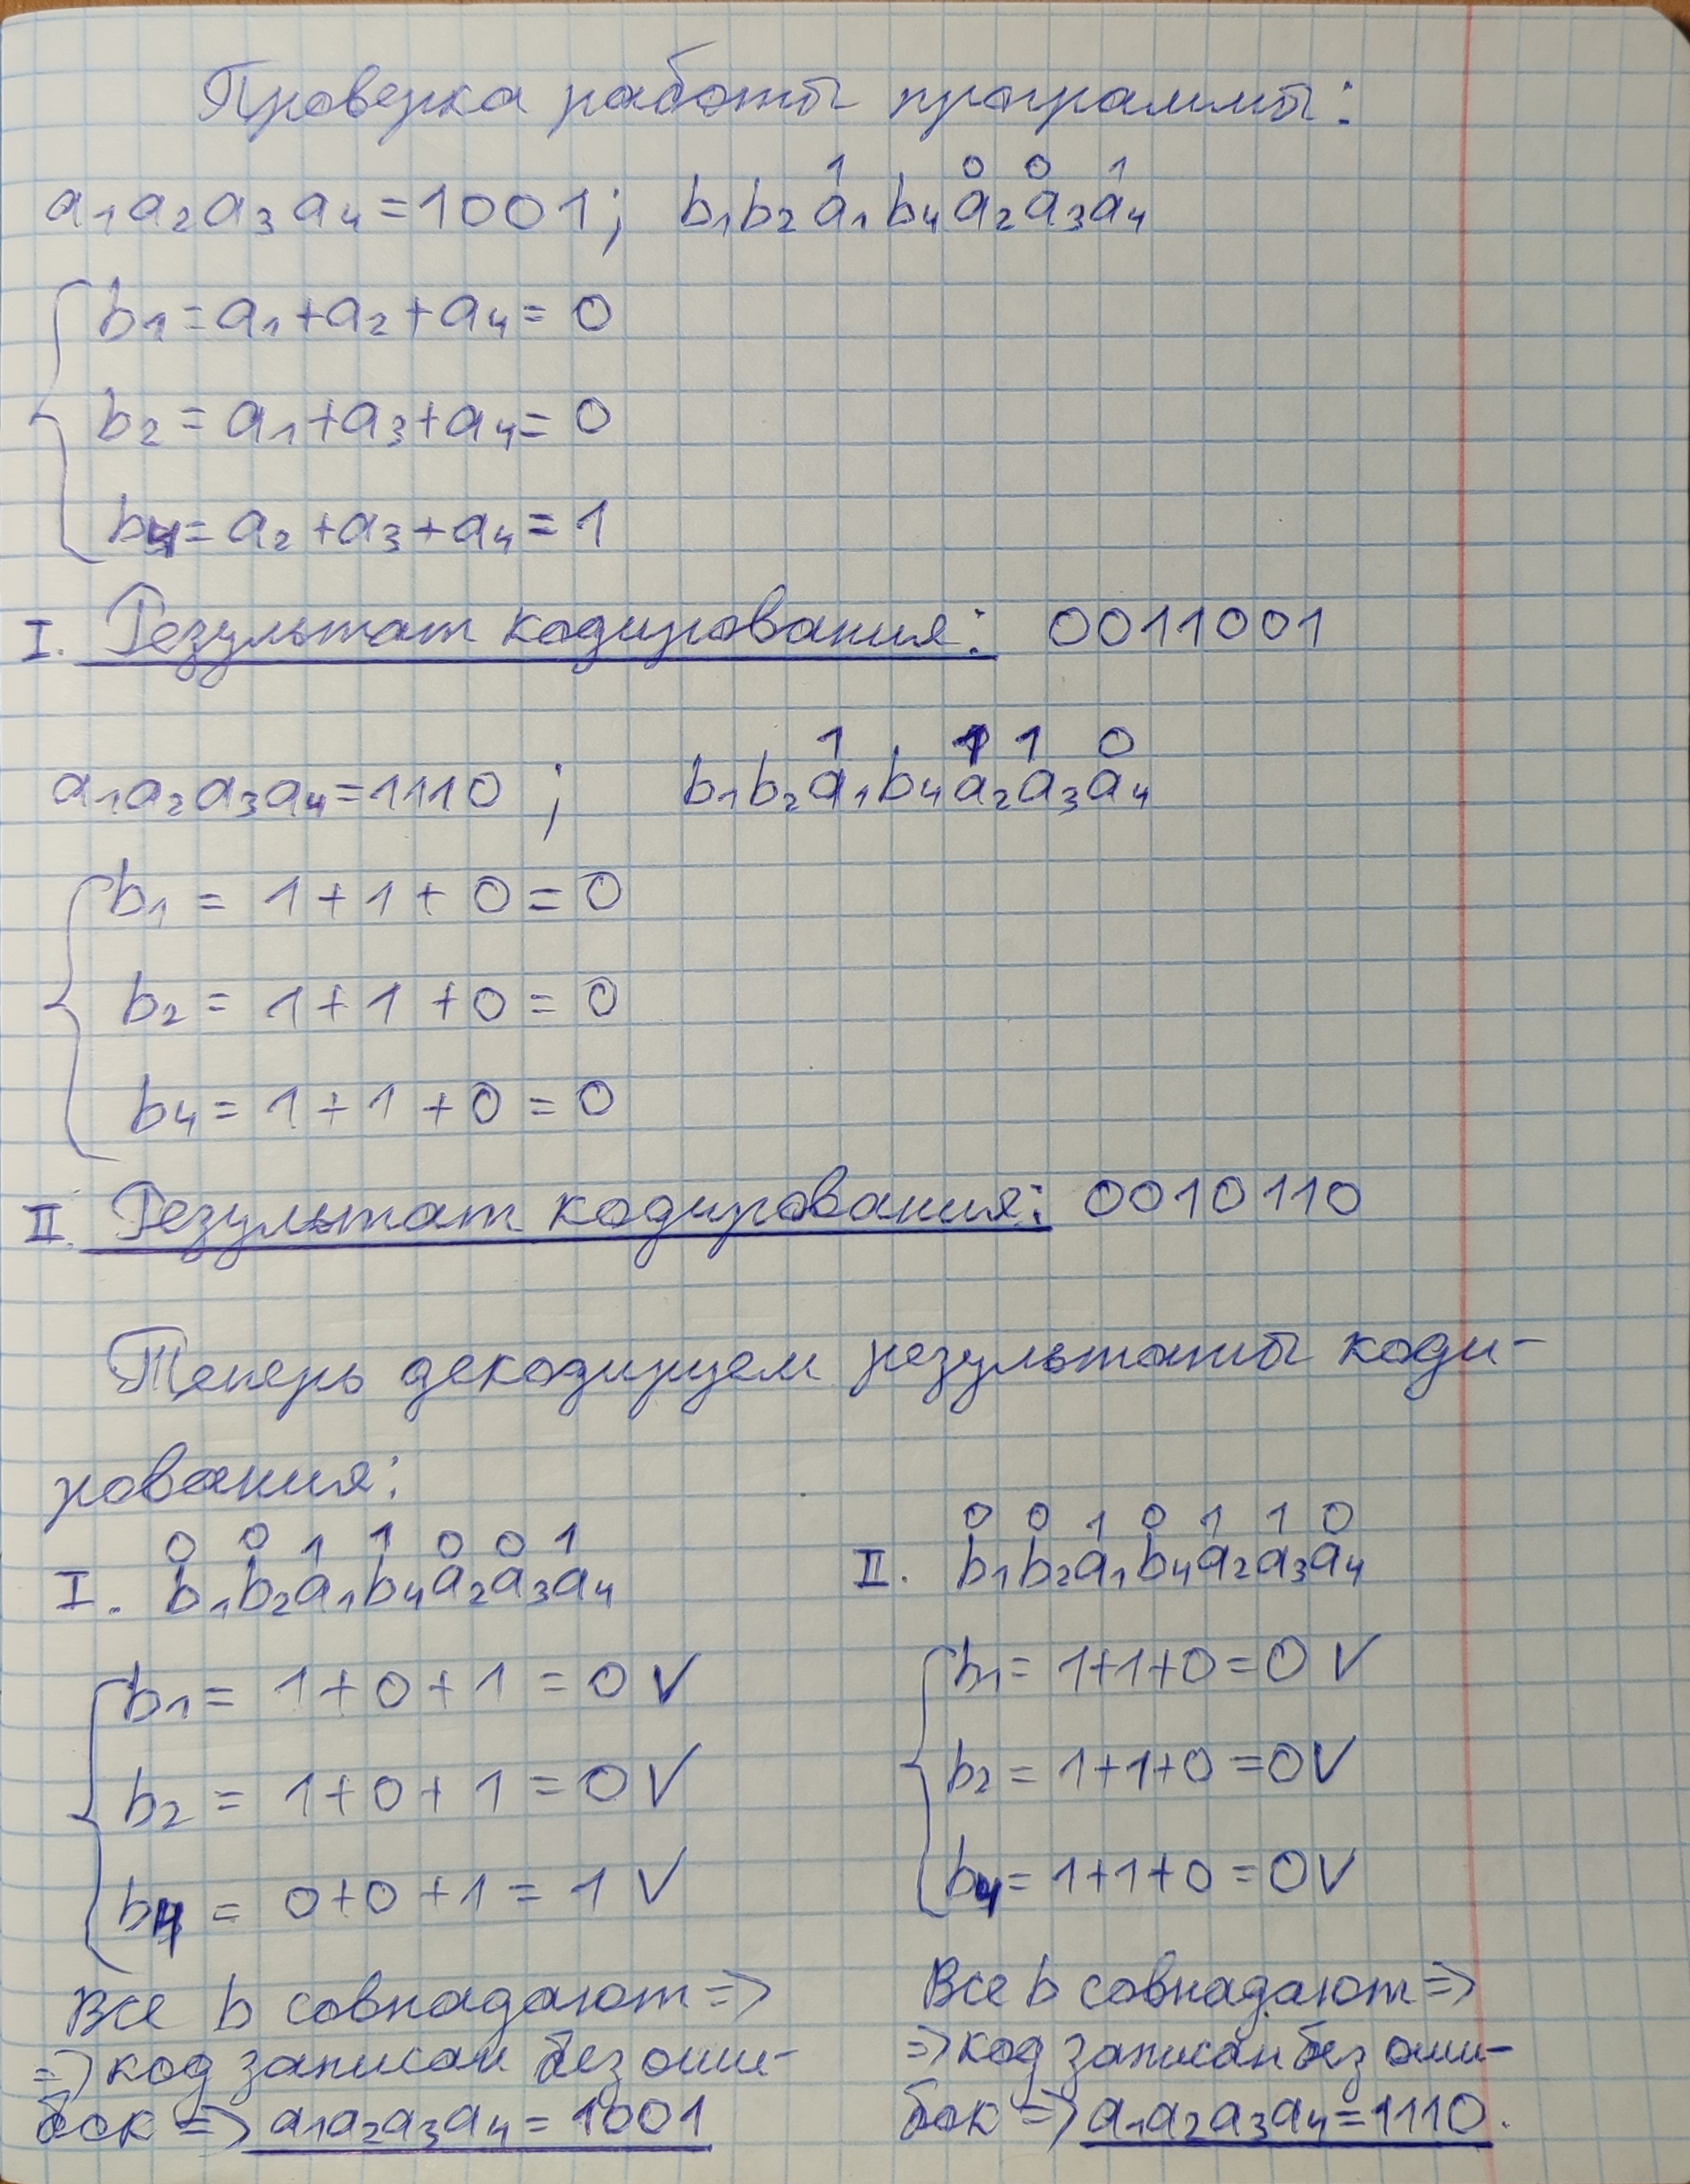 Проверка работы программы:
a₁a₂a₃a₄=1001; b₁b₂a₁b₄a₂a₃a₄
1 0 0 1
b₁=a₁+a₂+a₄=0
b₂=a₁+a₃+a₄=0
b₄=a₂+a₃+a₄=1
I. Результат кодирования: 0011001
a₁a₂a₃a₄=1110; b₁b₂a₁b₄a₂a₃a₄
1 1 1 0
b₁=1+1+0=0
b₂=1+1+0=0
b₄=1+1+0=0
II. Результат кодирования: 0010110
Теперь декодируем результаты коди-
рования:
0 0 1 1 0 0 1
I. b₁b₂a₁b₄a₂a₃a₄
b₁=1+0+1=0 V
b₂=1+0+1=0 V
b₄=0+0+1=1 V
Все b совпадают =>
=> код записан без оши-
бок => a₁a₂a₃a₄=1001
0 0 1 0 1 1 0
II. b₁b₂a₁b₄a₂a₃a₄
b₁=1+1+0=0 V
b₂=1+1+0=0 V
b₄=1+1+0=0 V
Все b совпадают =>
=> код записан без оши-
бок => a₁a₂a₃a₄=1110.